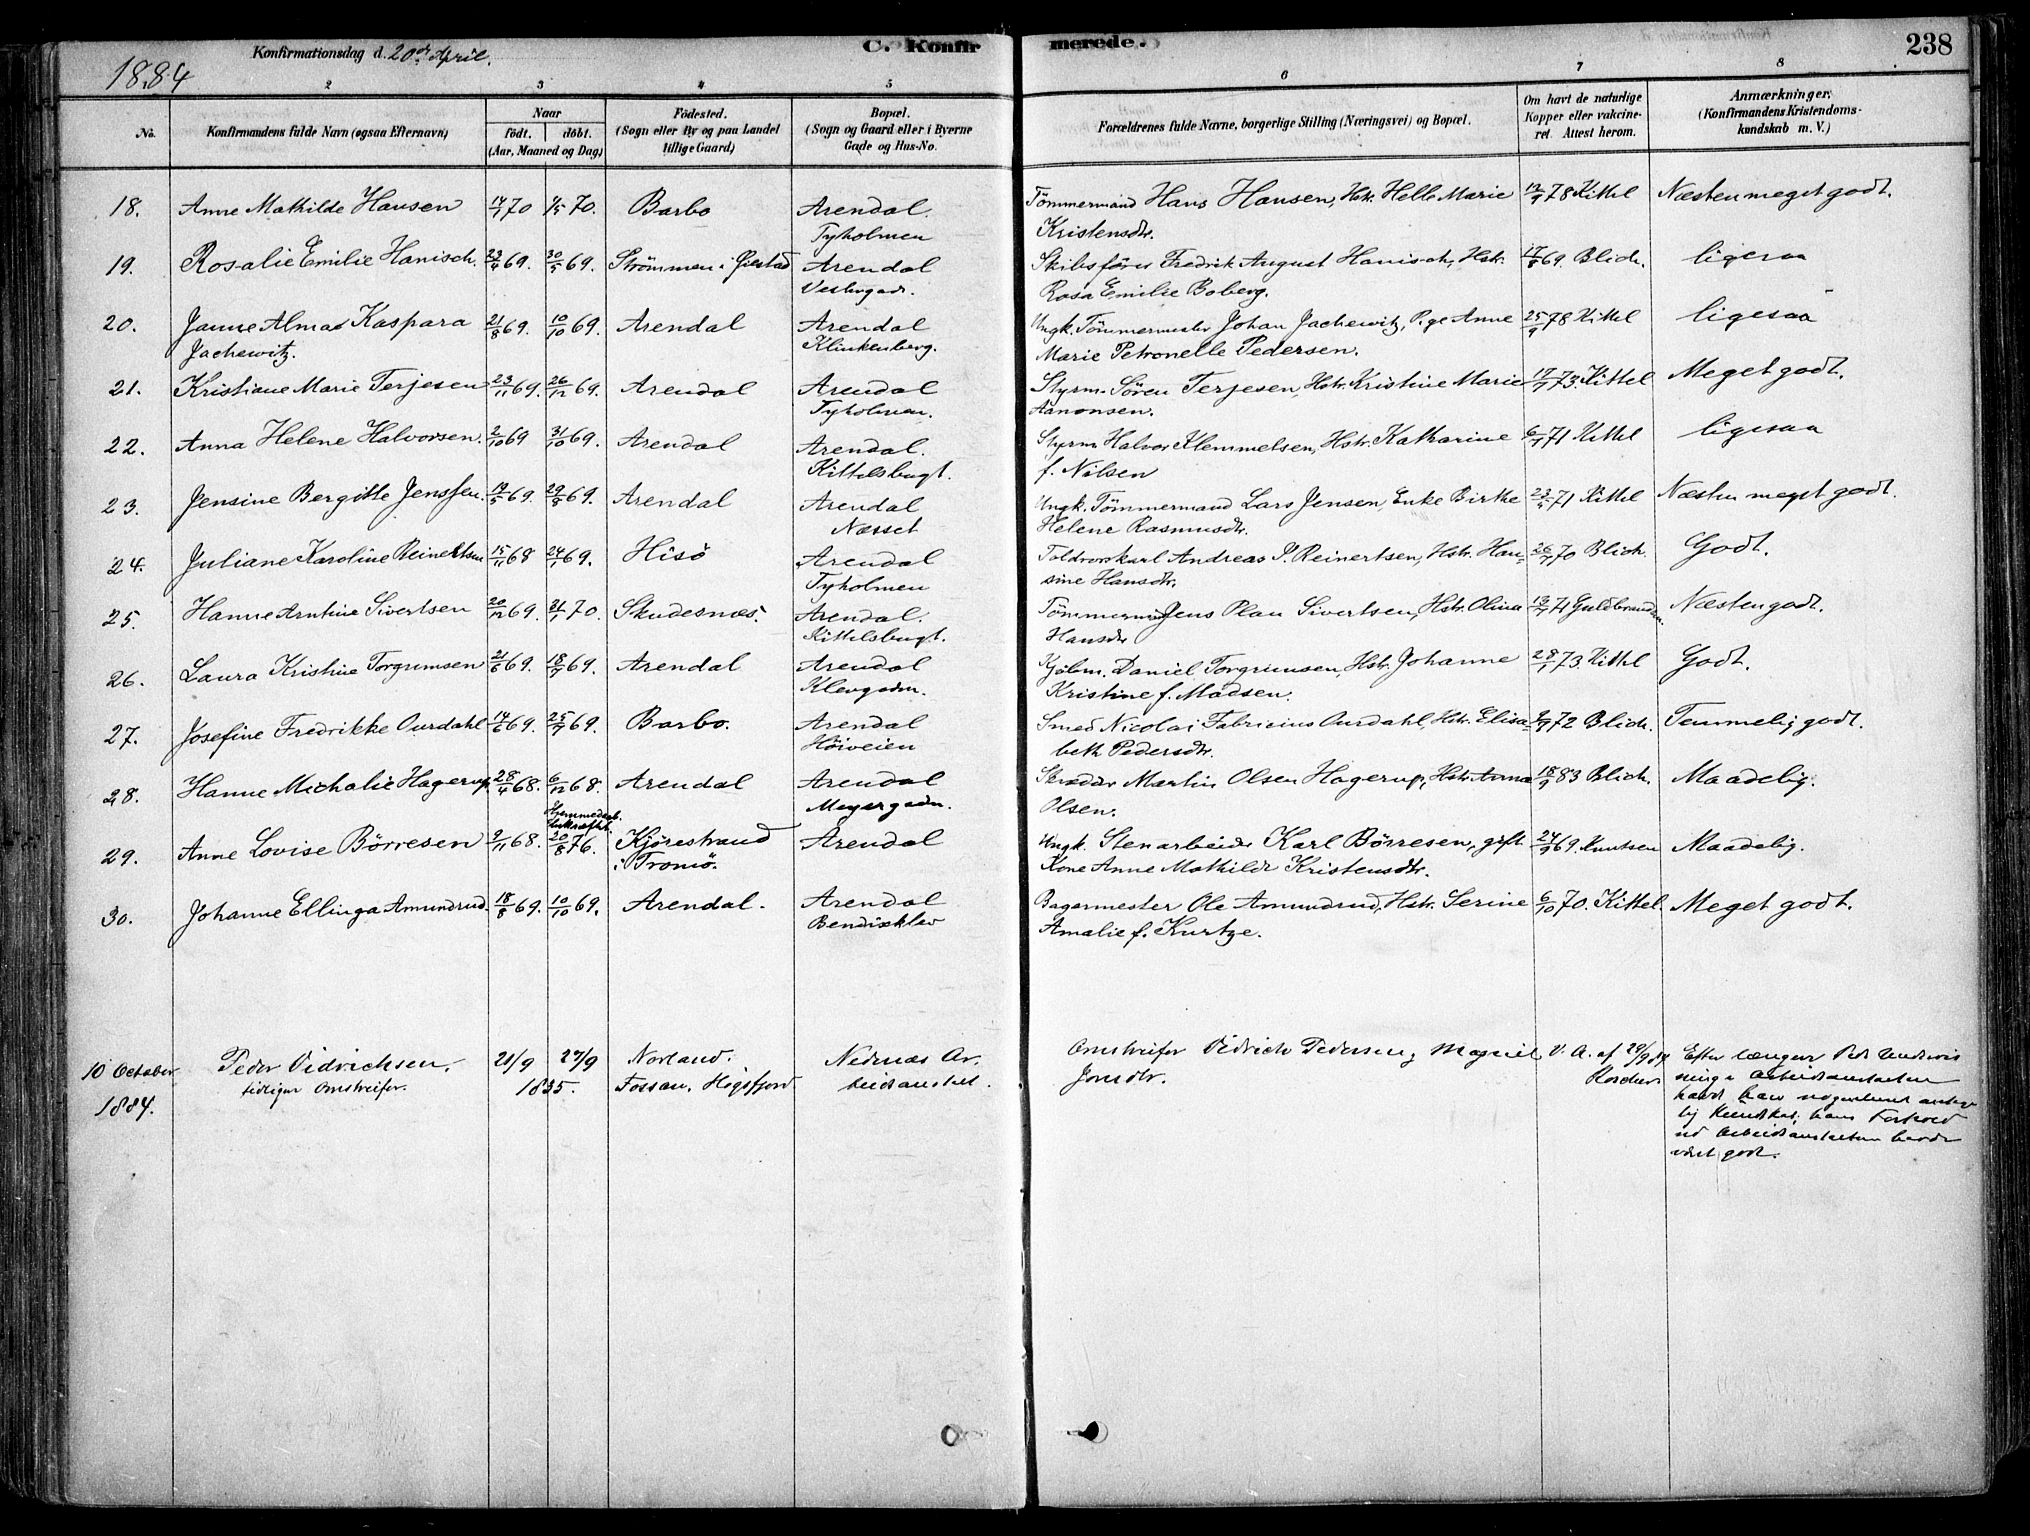 C. Konfirmerede.
238
Konfirmationsdag d. 20de April.
1884
2 3 4 5 6 7 8
No. Konfirmandens fulde Navn (ogsaa Efternavn) Naar født. døbt. (Aar, Maaned og Dag) Fødested. (Sogn eller By og paa Landet tillige Gaard) Bopæl. (Sogn og Gaard eller i Byerne Gade og Hus-No. Forældrenes fulde Navne, borgerlige Stilling (Næringsvei) og Bopæl. Om havt de naturlige Kopper eller vakcineret. Attest herom. Anmærkninger. (Konfirmandens Kristendomskundskab m. V.)
18. Anne Mathilde Hansen 70 70. Barbo Arendal. Tømmermand Hans Hansen, Hstr. Helle Marie 78 Kittel Næsten meget godt.
Tyholmen Kristensdtr.
19. Rosalie Emilie Hanisch. 23/4 69. 30/5 69. Strømmen i Øiestad Arendal Skibsfører Fredrik August Hanisch, Hstr. 69. Blich. ligesaa
Vestergade. Rosa Emilie Boberg.
20. Janne Alma Kaspara 21/8 69. 10/10 69. Arendal Arendal Ungk. Tømmermester Johan Jachewitz, Pige Anne 25/9 78 Kittel ligesaa
Jachewitz. Klinkenberg. Marie Petronelle Pedersen.
21. Kristiane Marie Terjesen 23/11 69. 26/12 69. Arendal Arendal Styrm. Søren Terjesen, Hstr. Kristine Marie 73. Kittel Meget godt.
Tyholmen. Aanonsen.
22. Anna Helene Halvorsen. 2/10 69 31/10 69. Arendal Arendal. Styrm. Halvor Klemmetsen, Hstr. Katharine 71 Kittel ligesaa
Kittelsbugt. f. Nilsen
23. Jensine Bergitte Jenssen. 19/5 69. 29/8 69. Arendal Arendal Ungk. Tømmermand Lars Jensen, Enke Birthe 71 Kittel Næsten meget godt.
Næsset Helene Rasmusdtr.
24. Juliane Karoline Reinertsen 15/11 68 24/1 69. Hisö Arendal Toldrorskarl Andreas P. Reinertsen, Hstr. Han- 70 Blich. Godt.
Tyholmen sine Hansdtr.
25. Hanne Arntine Sivertsen 20/12 69. 70. Skudesnæs. Arendal. Tømmermand Jens Plau Sivertsen, Hstr. Olina 71 Guldbrandsen. Næsten godt.
Kittelsbugt. Hansdtr
26. Laura Kristine Torgrimsen 21/6 69. 18/7 69. Arendal Arendal Daniel Torgrimsen, Hstr. Johanne 28/1 73. Kittel Godt.
Klevgaden. Kristine f. Madsen.
27. Josefine Fredrikke Ourdahl 14/6 69. 25/7 69. Barbo. Arendal Smed Nicolai Fabricius Ourdahl, Hstr. Elisa- 72 Blich. Temmelig godt.
Høiveien beth Pedersdtr.
28. Hanne Michalie Hagerup. 28/4 68. 6/12 68. Arendal Arendal Skræder Martin Olsen Hagerup, Hstr. Anna 83 Blich. Maadelig.
Meyergaden. Olsen.
Hjemmedøbt.
29. Anne Lovise Börresen 2/11 68. 20/8 76. Kjörestrand Arendal Ungk. Stenarbeider Karl Börresen, gift 24/9 69. Knutsen Maadelig.
i Tromö. Kone Anne Mathilde Kristensdtr.
30. Johanne Ellinga Amundrud. 18/8 69. 10/10 69. Arendal. Arendal Bagermester Ole Amundrud, Hstr. Serine 6/10 70. Kittel. Meget godt.
Bendiksklev Amalie f. Kurtze.
10 October Peder Didrichsen. 21/9 27/9 Norland. Nedenæs Ar- Omstreifer Didrich Pedersen, V. A. af 29/9 84 Efter længere Tids Undervis
1884. tidligere Omstreifer. 1835. Fossan, Högsfjord beidsanstalt. Jonsdtr. ning i Arbeidsanstalten
havde han
lig Kundskab; hans Forhold
ved Arbeidsanstalten havde
været godt.